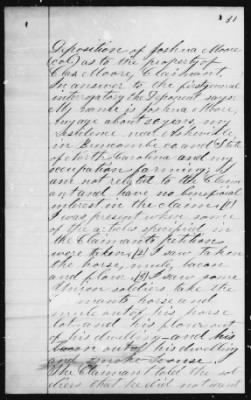 31
Deposition of Joshua Moore
(col) as to the property of
Chas Moore, Claimant.
In answer to the first general
interrogatory the Deponent says:
My name is Joshua Moore,
my age about 30 years, my
residence near Asheville,
in Buncombe co and State
of North Carolina and my
occupation farming; I
am not related to the Claim
ant and have no beneficial
interest in the claim.
I was present when some
of the articles specified in
the Claimants petition
were taken. I saw taken
the horse, mule, bacon
and flour. I saw some
Union soldiers take the
mants horse and
mule out of his horse
lot and his flour out
of his dwelling and his
bacon out of his dwelling
and smoke house.
The Claimant told the sol
diers that he did not want